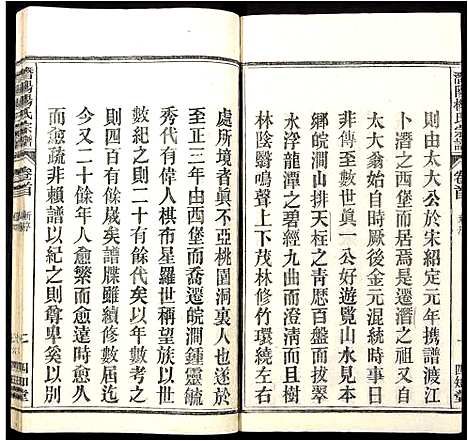 則由太大公於宋紹定元年攜譜渡江
卜潛之西堡而居焉是潛之一祖又自
太大翁始自時厥後金元混統時事日
非傳至數眞一公好遊
鄉皖澗山排天柱之靑歷百盤而翠
水浮龍潭之碧流九曲以
林陰翳鳴聲上下茂林修竹環繞左右
潛陽楊氏宗譜 卷首 新序 一 四知堂
處所境者眞不亞桃園洞裏人也遂於
至正三年由西堡而喬遷皖澗鍾靈毓
秀代有偉人棋布星羅世稱望族以世
數紀之則二十有餘代矣以年數考之
則四百有餘歲矣譜牒雖續修數屆迄
今又二十年人愈繁而愈遠時愈久
而愈疏非賴譜以紀之則尊卑奚以
潛陽楊氏宗譜 卷首 新序 二 四知堂